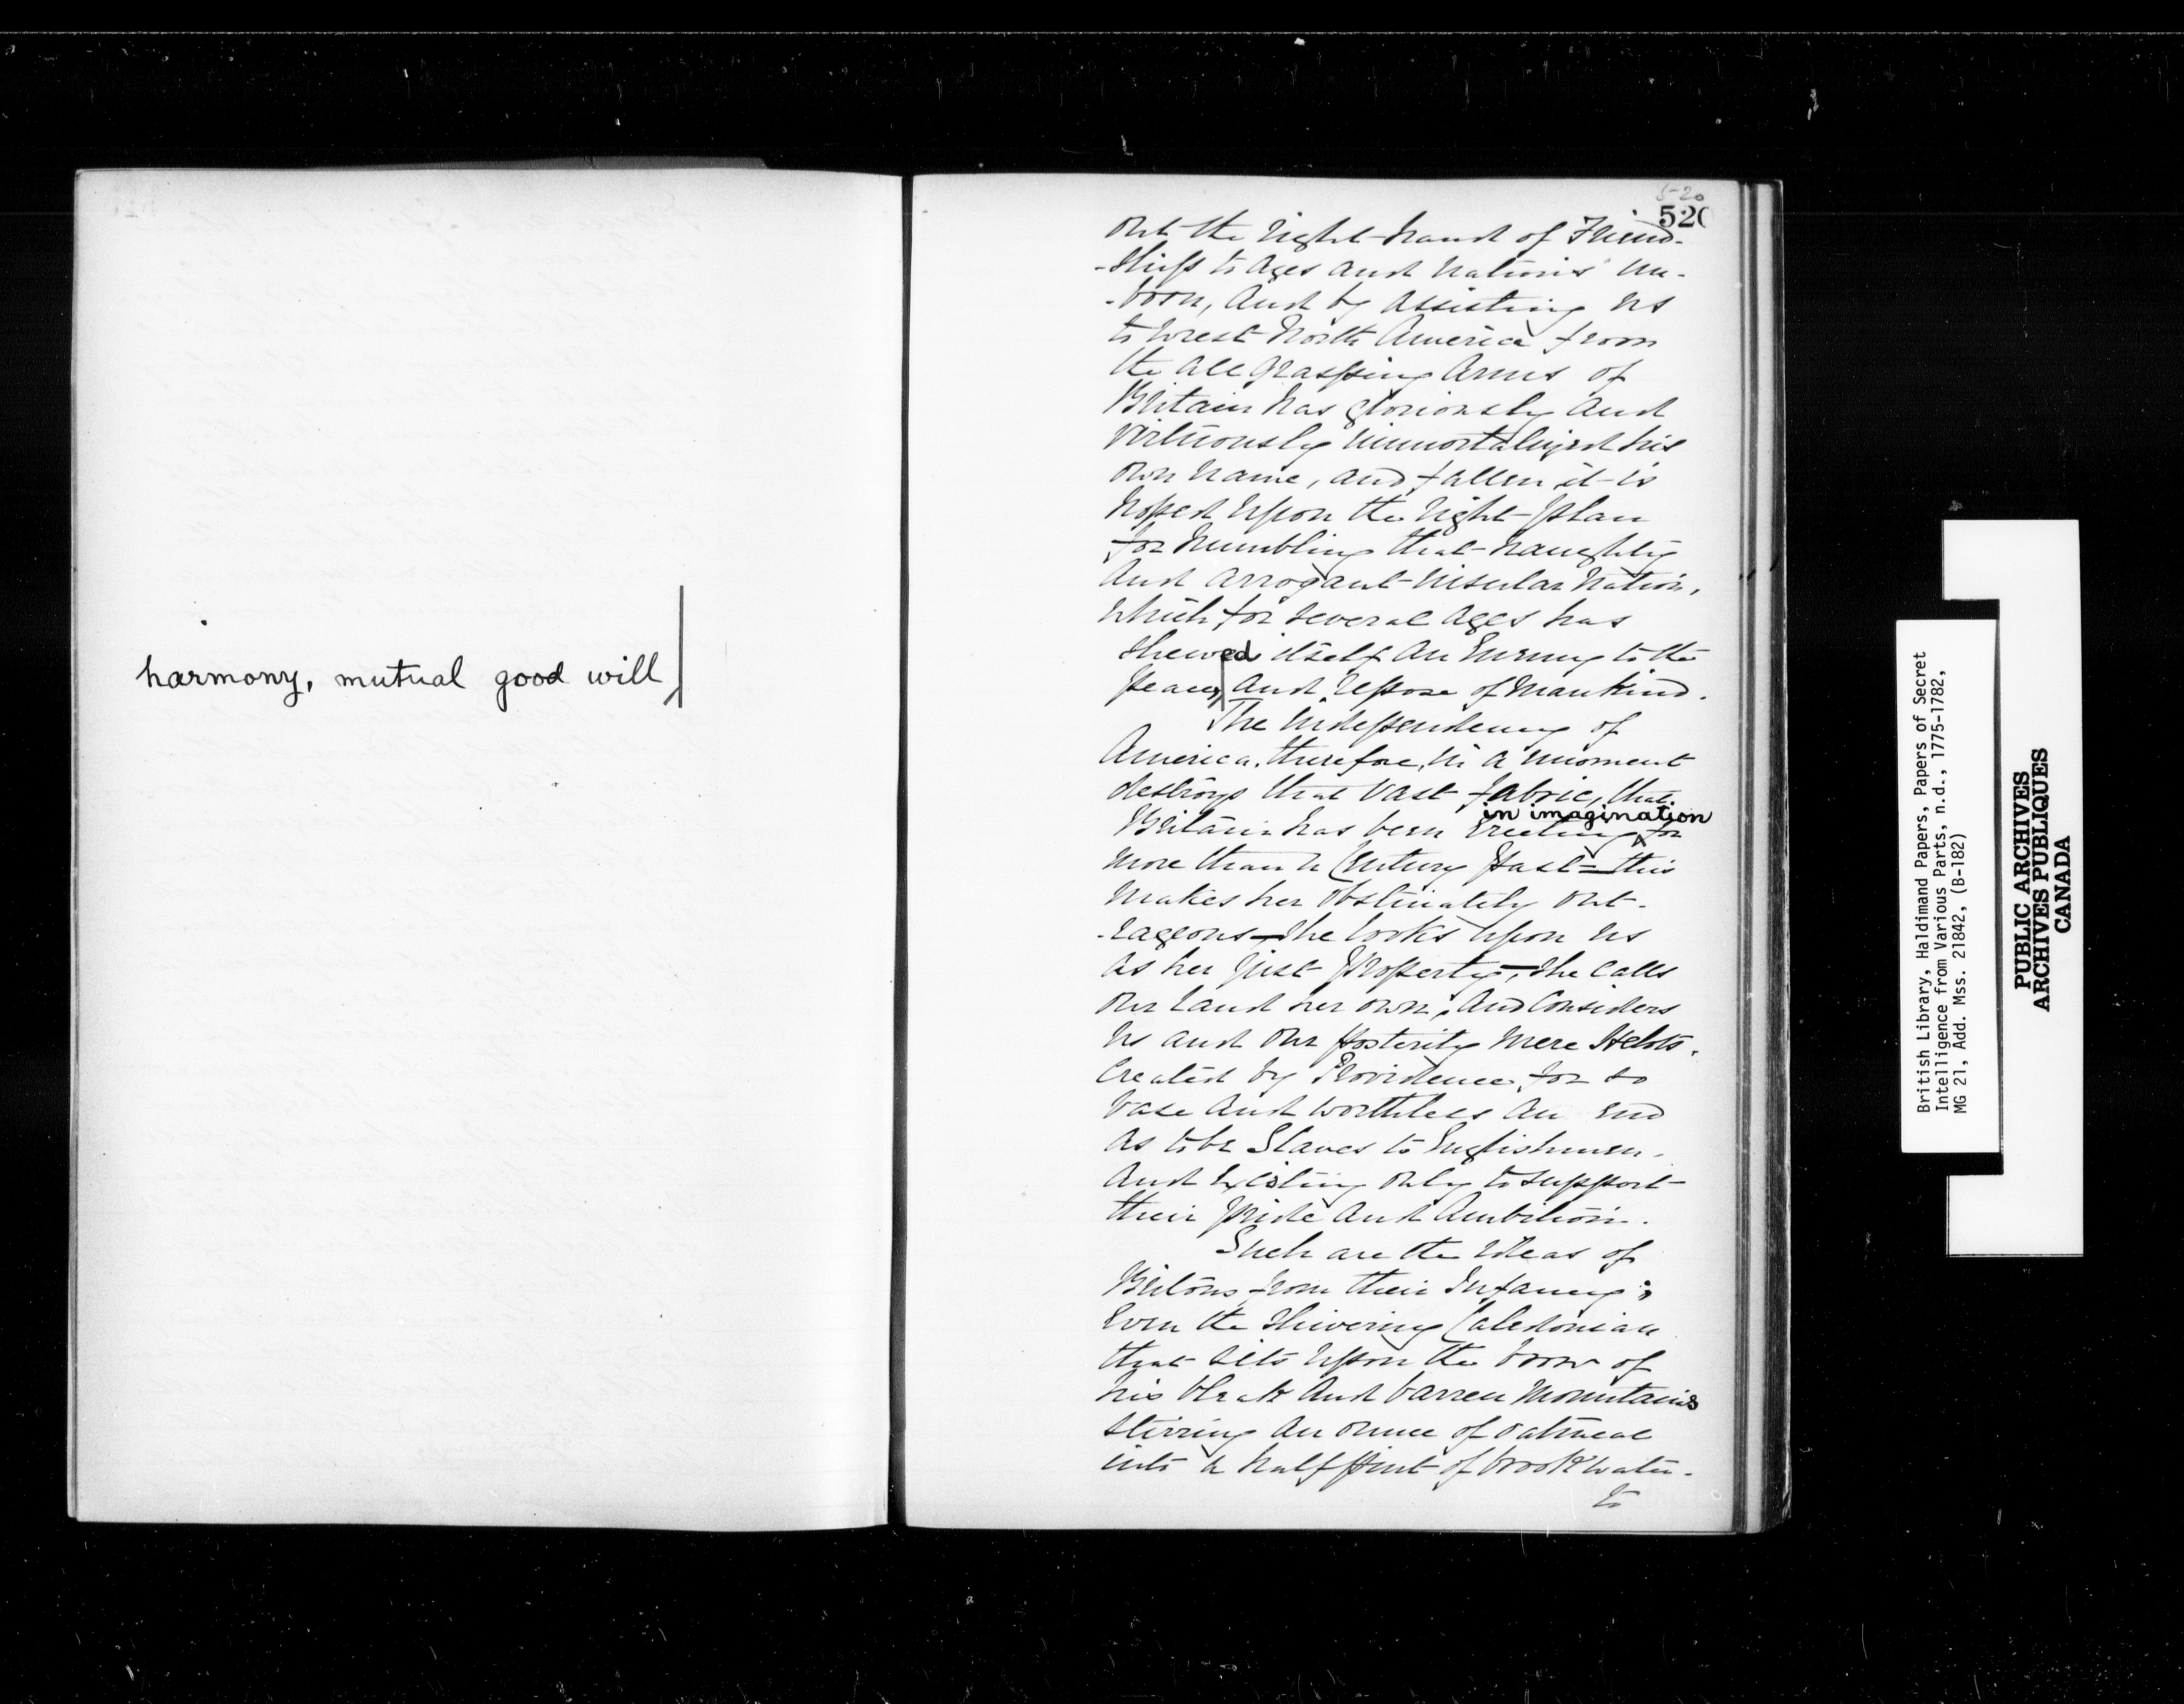 harmony, mutual good will
5-20
520
out the right hand of Friend-
-ship to ages and nations un-
-born, and by assisting us
to wrest North America from
the all grasping arms of
Britain has gloriously and
virtuously immortalized his
own name, and fallen it is
hoped upon the right plan
for humbling that haughty
and arrogant insular nation,
which for several ages has
shewed itself an Enemy to the
peace, and repose of Mankind.
The independency of
America, therefore, in a moment
destroys that vast fabric, that
in imagination
Britain has been erecting for
more than a Century past – this
makes her obstinately out-
-rageous – she looks upon us
as her just property – she calls
our land her own, and Considers
us and our posterity mere Helots.
Created by Providence for so
base and worthless an end
as to be Slaves to Englishmen.
and existing only to support
their pride and ambition.
Such are the ideas of
Britons from their Infancy;
even the shivering Caledonian
that sits upon the brow of
his bleak and barren mountains
stirring an ounce of oatmeal
into a half pint of brook water.
to
British Library, Haldimand Papers, Papers of Secret
Intelligence from Various Parts, n.d., 1775-1782,
MG 21, Add. Mss. 21842, (B-182)
PUBLIC ARCHIVES
ARCHIVES PUBLIQUES
CANADA